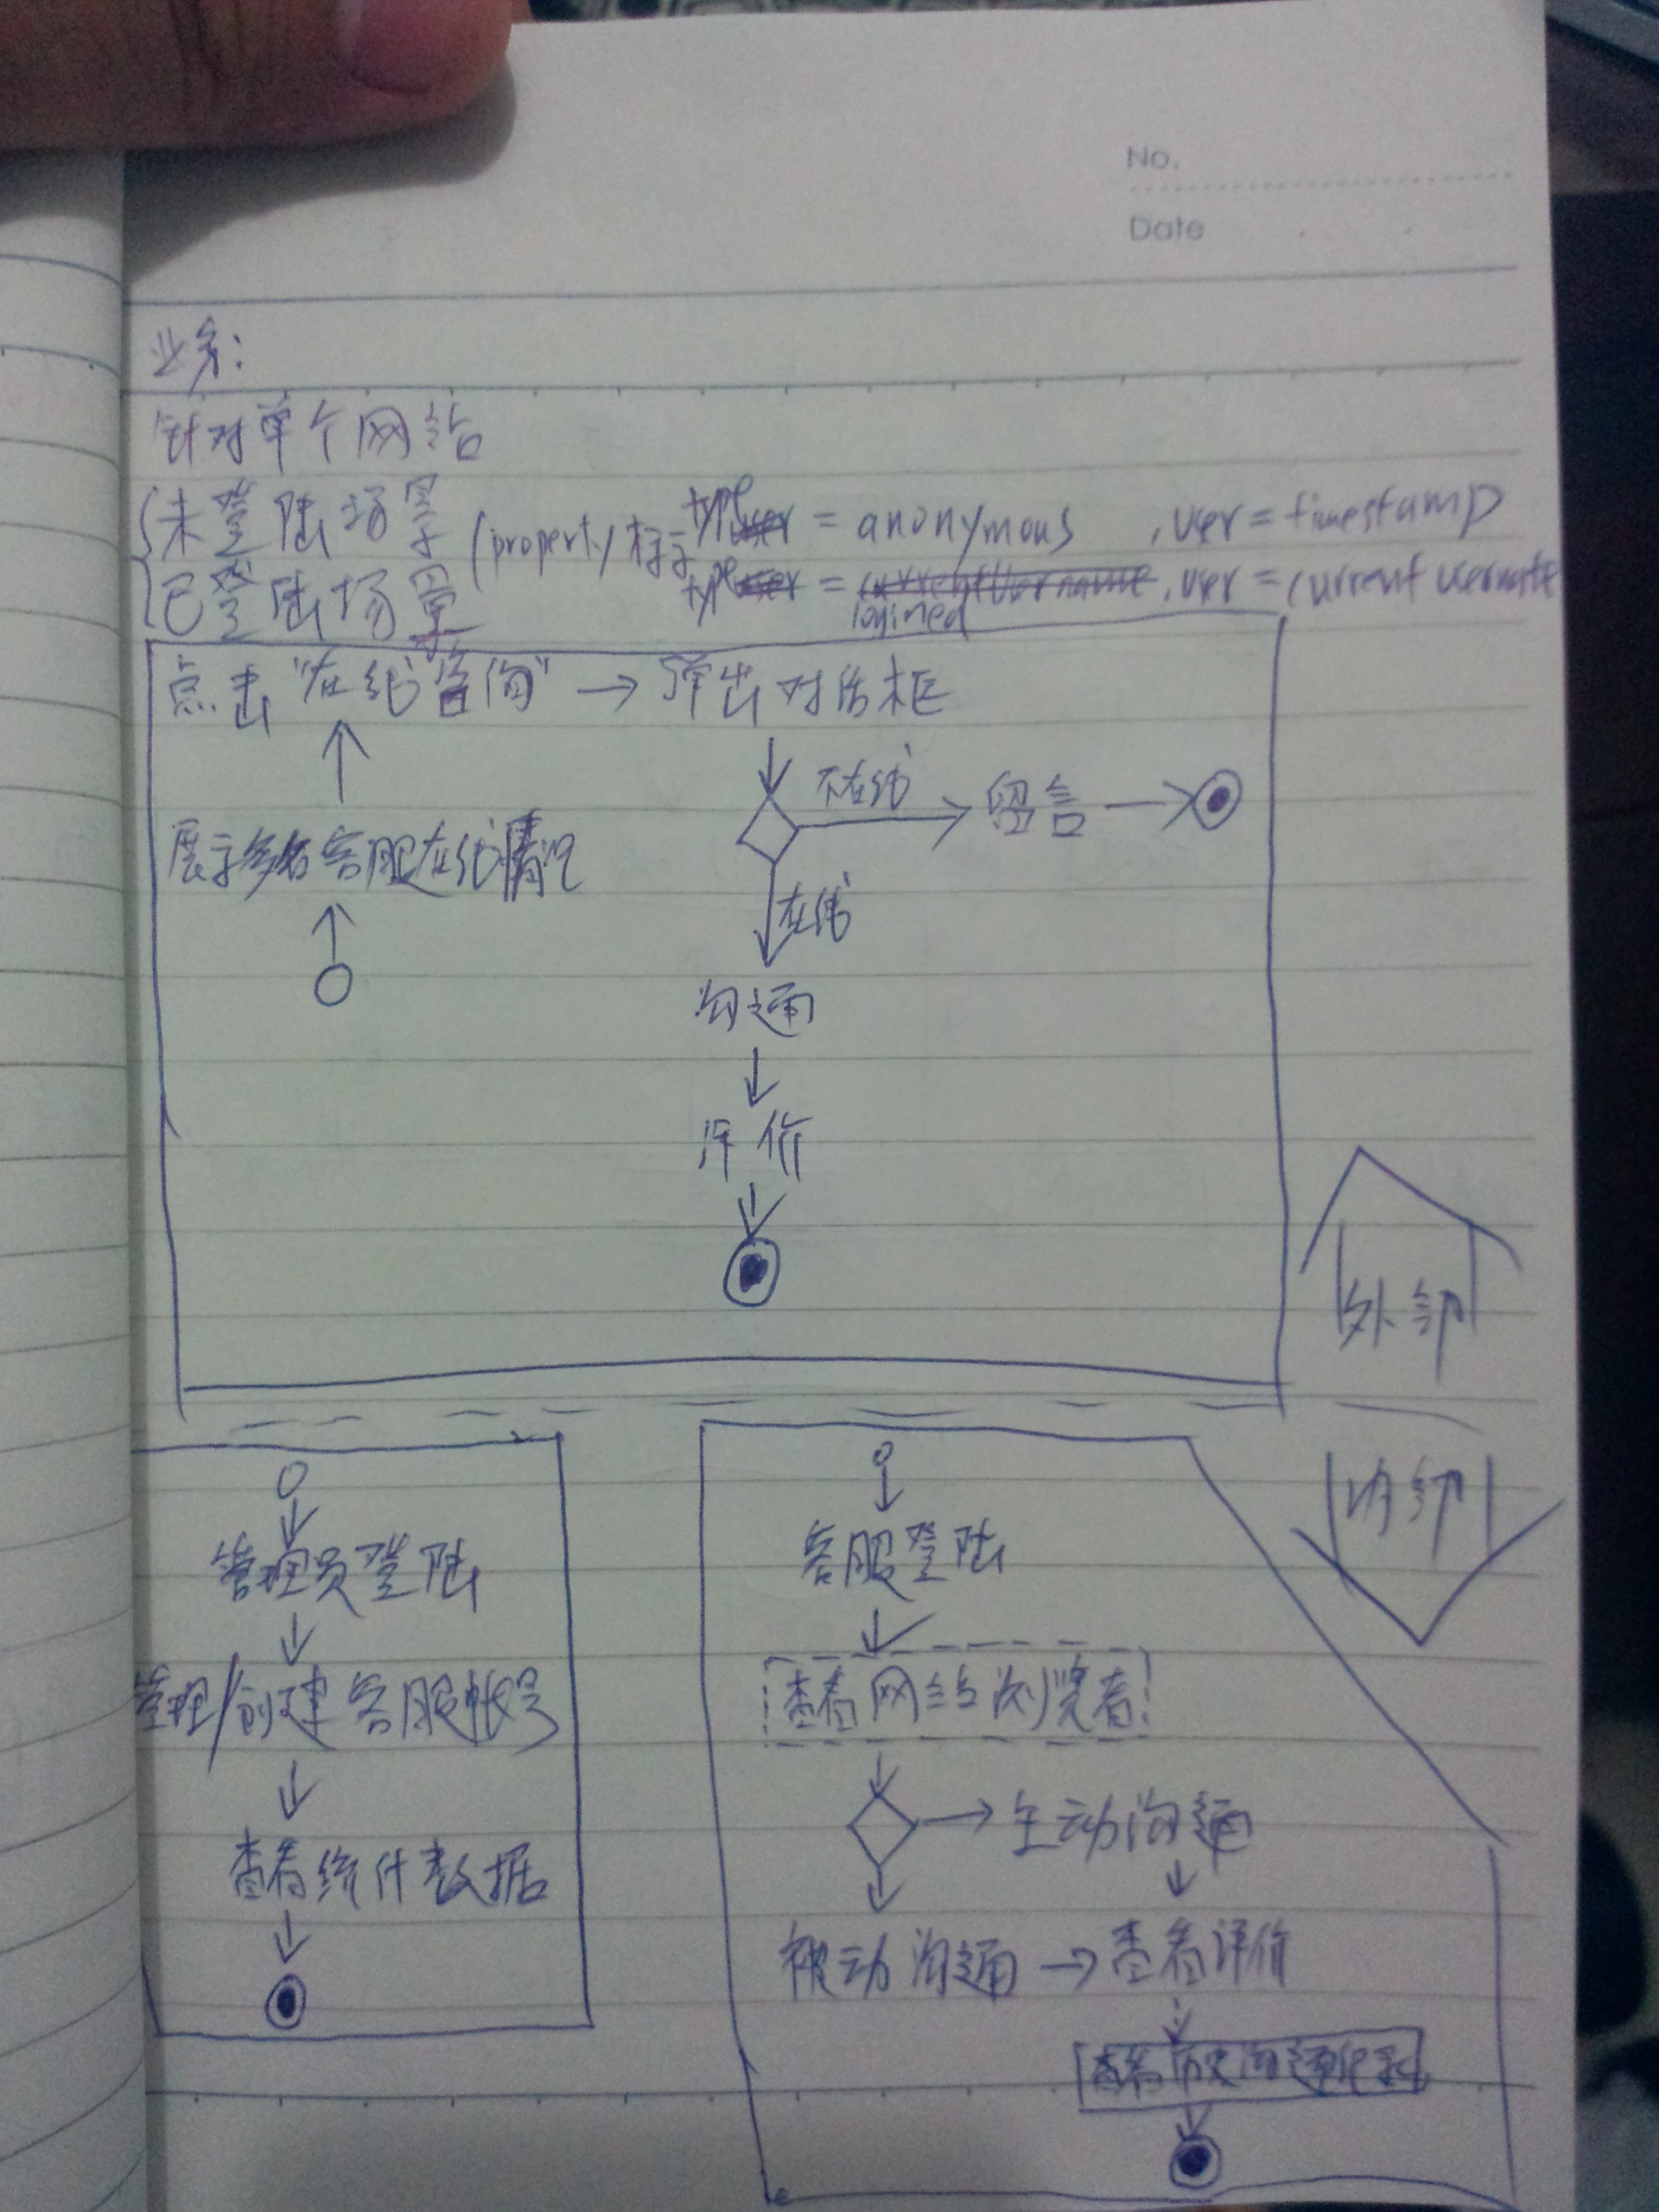 No.
Date
业务:
针对单个网站
未登陆场景 (property标示 type = anonymous , user = timestamp
已登陆场景 type = logined , user = current username
点击"在线咨询" → 弹出对话框
不在线
留言
展示多名客服在线情况
在线
沟通
评价
外部
内部
管理员登陆
管理/创建客服帐号
查看统计数据
客服登陆
查看网站浏览者
主动沟通
被动沟通 → 查看评价
查看历史沟通记录